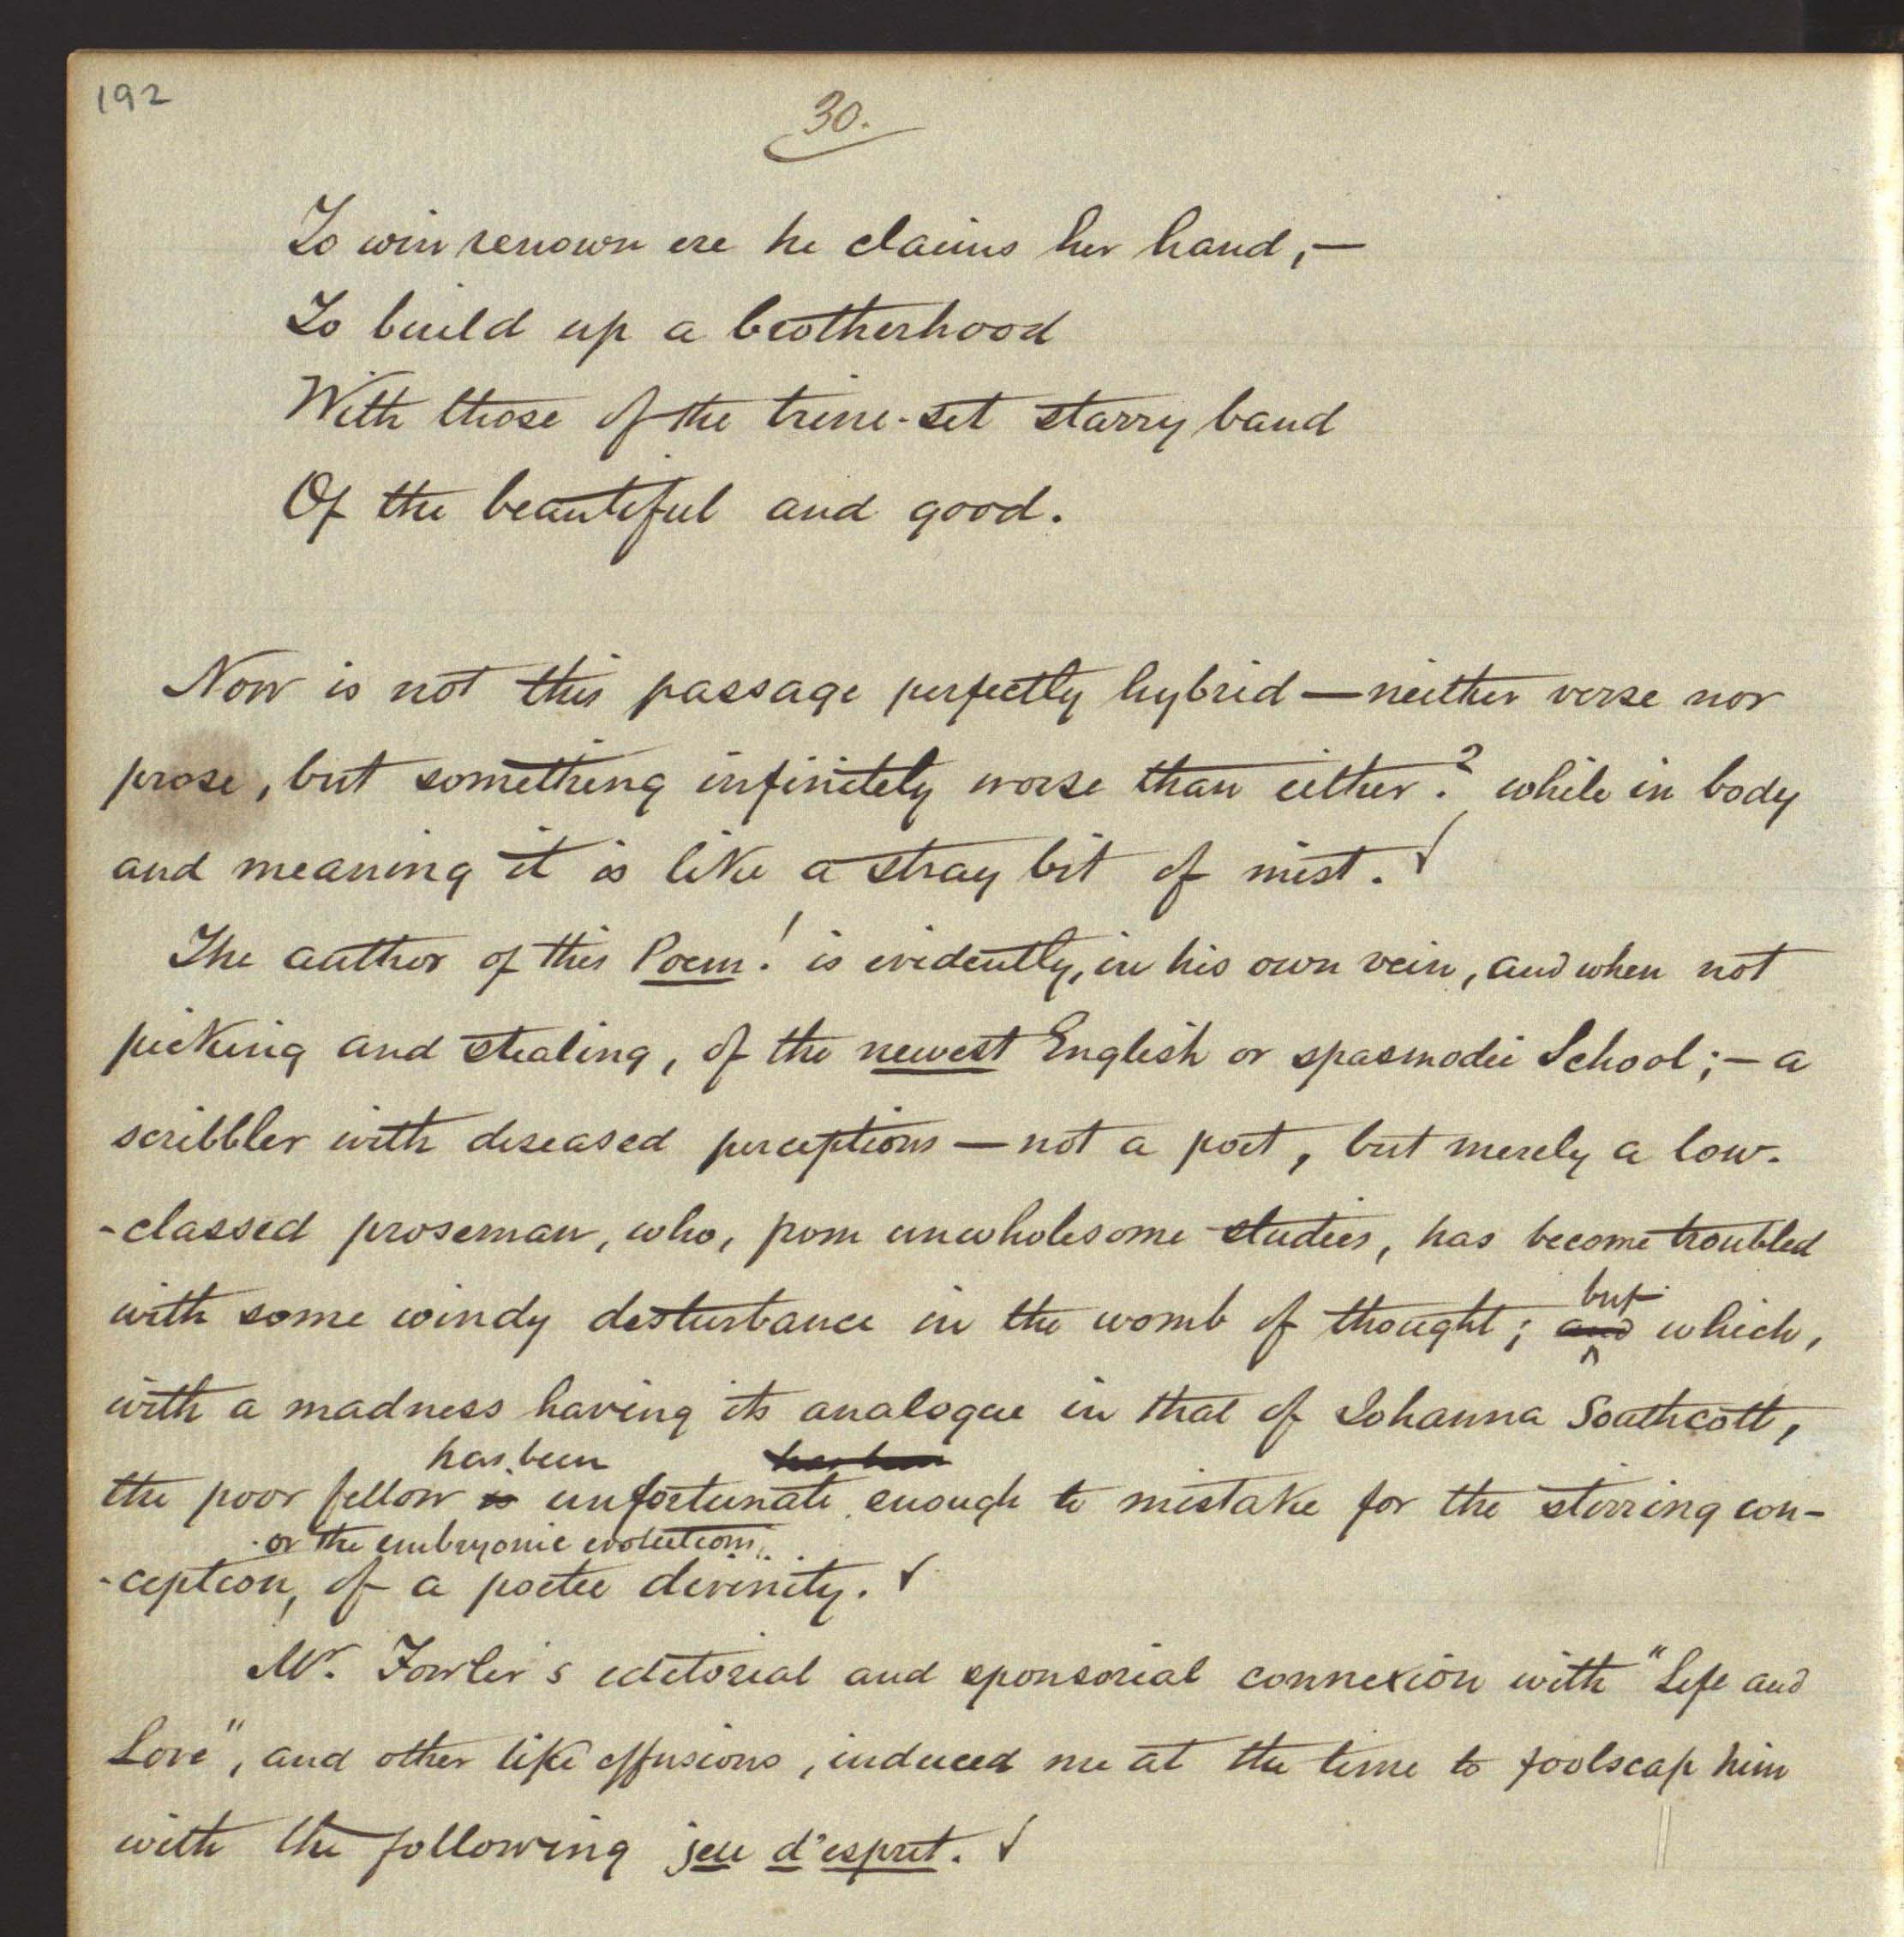 192
30.
To win renown ere he claims her hand,—
To build up a brotherhood
With those of the trine-set starry band
Of the beautiful and good.
Now is not this passage perfectly hybrid—neither verse nor
prose, but something infinitely worse than either? while in body
and meaning it is like a stray bit of mist. √
The author of this Poem! is evidently, in his own vein, and when not
picking and stealing, of the newest English or spasmodic School;—a
scribbler with diseased perceptions—not a poet, but merely a low-
-classed proseman, who, from unwholesome studies, has become troubled
but
with some windy disturbance in the womb of thought; and which,
with a madness having its analogue in that of Johanna Southcott,
has been has been
the poor fellow is unfortunate enough to mistake for the stirring con-
or the embryonic evolutions,
-ception, of a poetic divinity. √
Mr. Fowler's editorial and sponsorial connexion with "Life and
Love", and other like effusions, induced me at the time to foolscap him
with the following jeu d'esprit. √